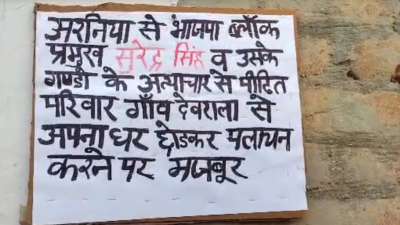 अरनिया से भाजपा ब्लॉक
प्रमुख सुरेंद्र सिंह व उसके
गुण्डो के अत्याचार से पीडित
परिवार गाँव देवराला से
अपना घर छोडकर पलायन
करने पर मजबूर